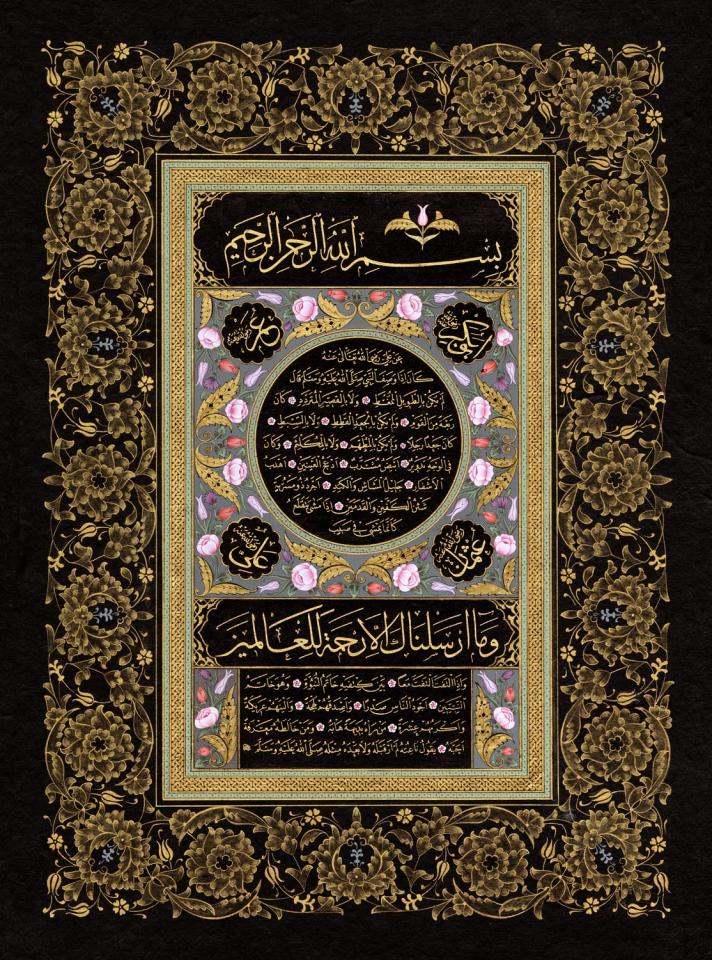 بسم الله الرحمن الرحيم
أبو بكر
عمر
عن علي رضي الله تعالى عنه
كان إذا وصف النبي صلى الله عليه وسلم قال
لم يكن بالطويل الممغط ولا بالقصير المتردد كان
ربعة من القوم ولم يكن بالجعد القطط ولا بالسبط
كان جعدا رجلا ولم يكن بالمطهم ولا بالمكلثم وكان
في الوجه تدوير أبيض مشرب أدعج العينين أهدب
الأشفار جليل المشاش والكتد أجرد ذو مسربة
شثن الكفين والقدمين إذا مشى تقلع
كأنما يمشي في صبب
عثمان
علي
وما أرسلناك إلا رحمة للعالمين
وإذا التفت التفت معا بين كتفيه خاتم النبوة وهو خاتم
النبيين أجود الناس صدرا وأصدقهم لهجة وألينهم عريكة
وأكرمهم عشرة من رآه بديهة هابه ومن خالطه معرفة
أحبه يقول ناعته لم أر قبله ولا بعده مثله صلى الله عليه وسلم